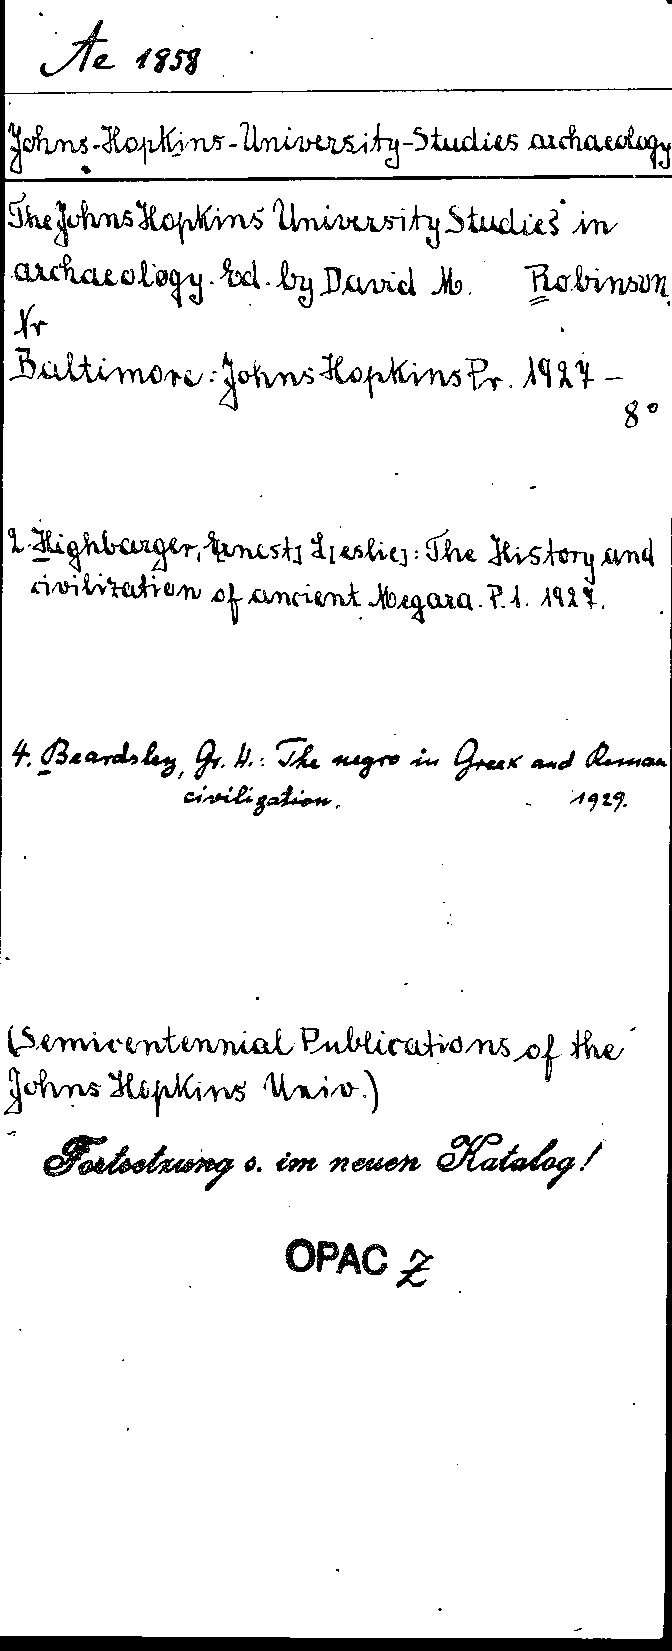 Ae 1858
Johns-Hopkins-University-Studies archaeology
The Johns Hopkins University Studies in
archaeology. Ed. by David M. Robinson.
Nr
Baltimore: Johns Hopkins Pr. 1927 –
8°
2. Highbarger, Ernest] L[eslie]: The History and
civilization of ancient Megara. P. 1. 1927.
4. Beardsley, Gr. H.: The negro in Greek and Roman
civilization. 1929.
(Semicentennial Publications of the
Johns Hopkins Univ.)
Fortsetzung s. im neuen Katalog!
OPAC Z